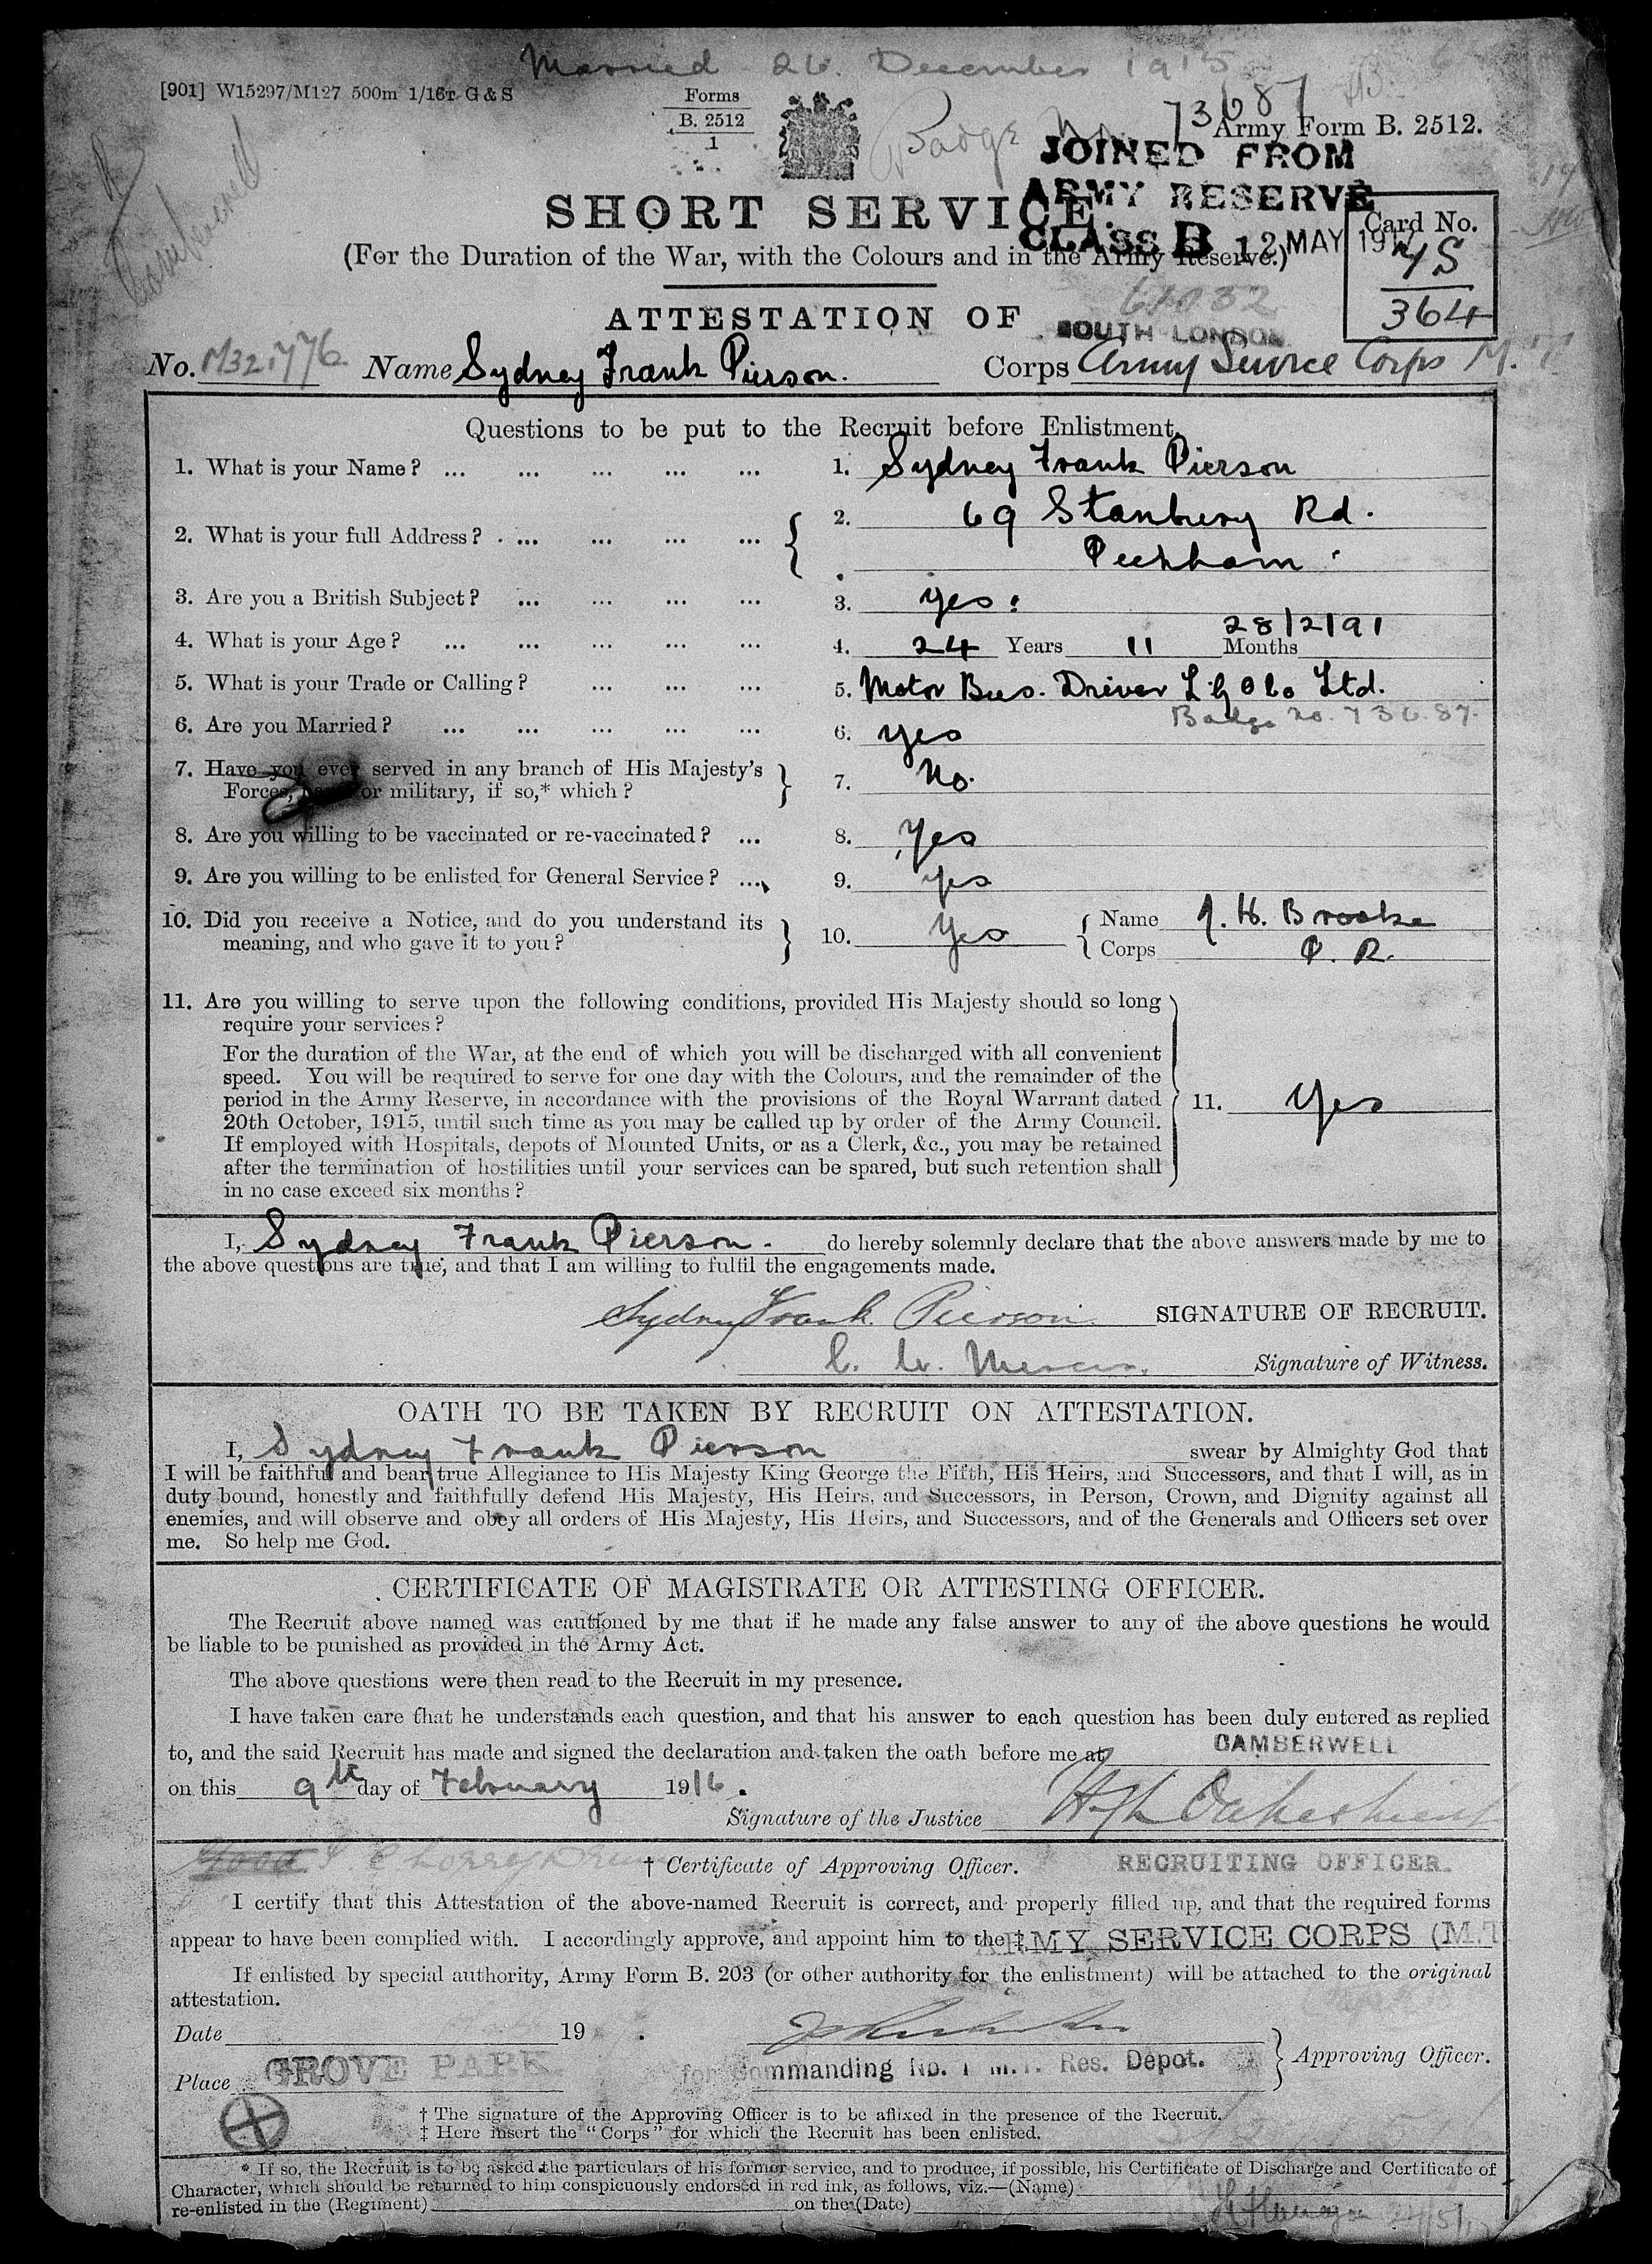 Married 26. December 1915
[901] W15297/M127 500m 1/16r G & S
Forms
B. 2512
1
Badge No 73687
Army Form B. 2512.
JOINED FROM
ARMY RESERVE
CLASS B 12 MAY 191
Camberwell
SHORT SERVICE.
(For the Duration of the War, with the Colours and in the Army Reserve.)
Card No.
YS
364
ATTESTATION OF
SOUTH LONDON
No. M321776 Name Sydney Frank Pierson. Corps Army Service Corps M.T.
Questions to be put to the Recruit before Enlistment.
1. What is your Name? ... ... ... ... ... 1. Sydney Frank Pierson
2. What is your full Address? ... ... ... ... 2. 69 Stanbury Rd.
Peckham
3. Are you a British Subject? ... ... ... ... 3. yes.
28/2/91
4. What is your Age? ... ... ... ... ... 4. 24 Years 11 Months
5. What is your Trade or Calling? ... ... ... 5. Motor Bus. Driver L.G.O.Co Ltd.
Badge no. 73687.
6. Are you Married? ... ... ... ... ... 6. yes
7. Have you ever served in any branch of His Majesty's
Forces, naval or military, if so,* which? 7. No.
8. Are you willing to be vaccinated or re-vaccinated? ... 8. Yes
9. Are you willing to be enlisted for General Service? ... 9. yes
10. Did you receive a Notice, and do you understand its
meaning, and who gave it to you? 10. Yes Name J. H. Brooke
Corps C. R.
11. Are you willing to serve upon the following conditions, provided His Majesty should so long
require your services?
For the duration of the War, at the end of which you will be discharged with all convenient
speed. You will be required to serve for one day with the Colours, and the remainder of the
period in the Army Reserve, in accordance with the provisions of the Royal Warrant dated
20th October, 1915, until such time as you may be called up by order of the Army Council.
If employed with Hospitals, depots of Mounted Units, or as a Clerk, &c., you may be retained
after the termination of hostilities until your services can be spared, but such retention shall
in no case exceed six months?
11. Yes
I, Sydney Frank Pierson. do hereby solemnly declare that the above answers made by me to
the above questions are true, and that I am willing to fulfil the engagements made.
Sydney Frank Pierson SIGNATURE OF RECRUIT.
C. W. Mercer. Signature of Witness.
OATH TO BE TAKEN BY RECRUIT ON ATTESTATION.
I, Sydney Frank Pierson swear by Almighty God that
I will be faithful and bear true Allegiance to His Majesty King George the Fifth, His Heirs, and Successors, and that I will, as in
duty bound, honestly and faithfully defend His Majesty, His Heirs, and Successors, in Person, Crown, and Dignity against all
enemies, and will observe and obey all orders of His Majesty, His Heirs, and Successors, and of the Generals and Officers set over
me. So help me God.
CERTIFICATE OF MAGISTRATE OR ATTESTING OFFICER.
The Recruit above named was cautioned by me that if he made any false answer to any of the above questions he would
be liable to be punished as provided in the Army Act.
The above questions were then read to the Recruit in my presence.
I have taken care that he understands each question, and that his answer to each question has been duly entered as replied
to, and the said Recruit has made and signed the declaration and taken the oath before me at CAMBERWELL
on this 9th day of February 1916.
Signature of the Justice
† Certificate of Approving Officer.
RECRUITING OFFICER.
I certify that this Attestation of the above-named Recruit is correct, and properly filled up, and that the required forms
appear to have been complied with. I accordingly approve, and appoint him to the ‡ ARMY SERVICE CORPS (M.T
If enlisted by special authority, Army Form B. 203 (or other authority for the enlistment) will be attached to the original
attestation.
Date 19 .
Place GROVE PARK
for Commanding No. 1 M.T. Res. Depot.
Approving Officer.
† The signature of the Approving Officer is to be affixed in the presence of the Recruit.
‡ Here insert the "Corps" for which the Recruit has been enlisted.
* If so, the Recruit is to be asked the particulars of his former service, and to produce, if possible, his Certificate of Discharge and Certificate of
Character, which should be returned to him conspicuously endorsed in red ink, as follows, viz.—(Name)
re-enlisted in the (Regiment) on the (Date)